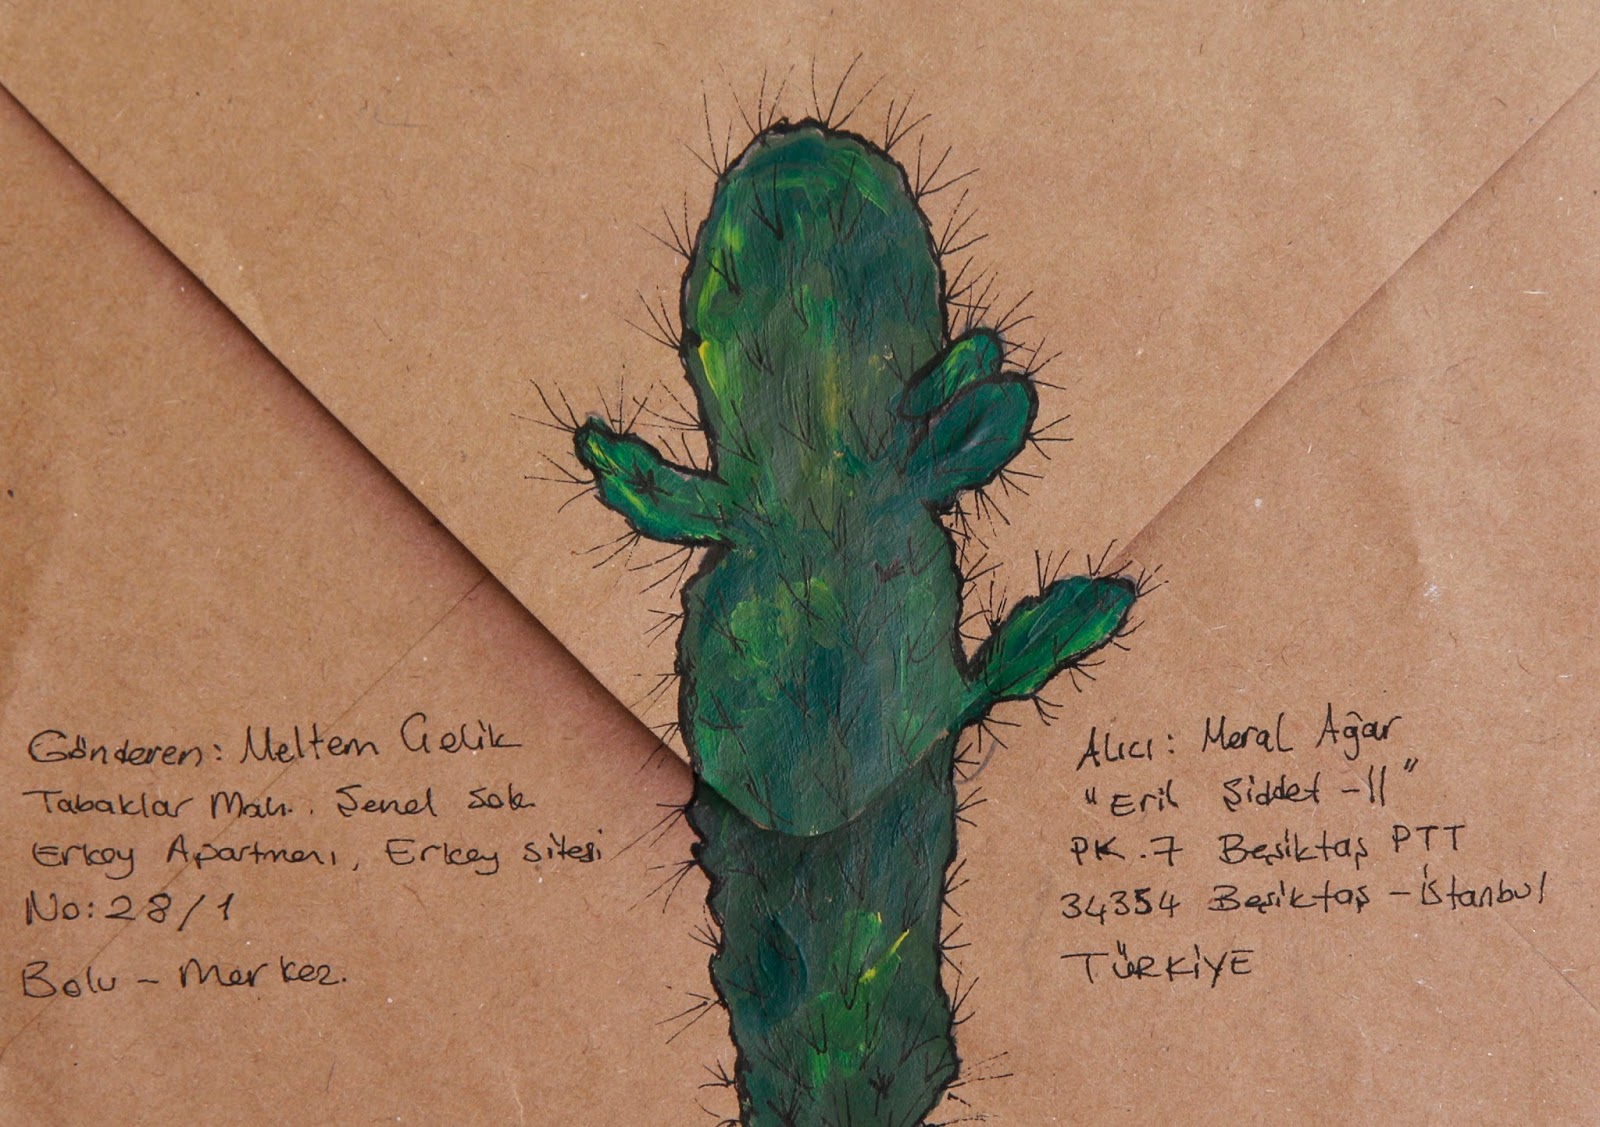 Gönderen: Meltem Çelik
Tabaklar Mah. Şenel Sok
Erkey Apartmanı, Erkey Sitesi
No: 28/1
Bolu - Merkez.
Alıcı: Meral Ağar
"Eril Şiddet - II"
PK. 7 Beşiktaş PTT
34354 Beşiktaş - İstanbul
TÜRKİYE